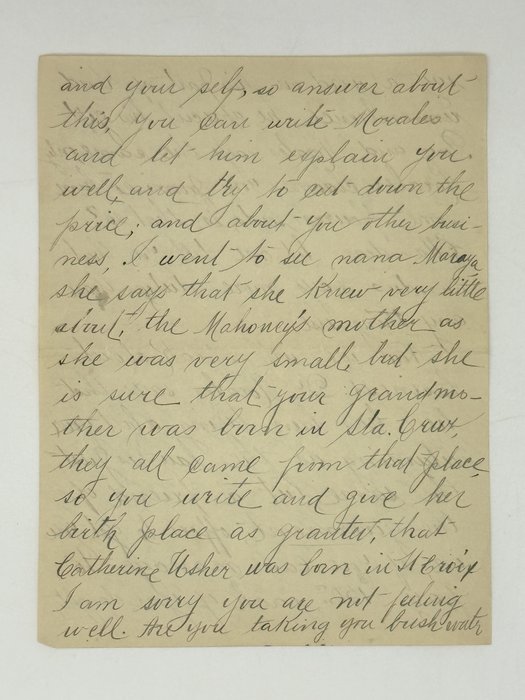 and your self, so answer about
this, you can write Morales
and let him explain you
well, and try to cut down the
price; and about you other busi-
ness, I went to see nana Maraya
she says that she knew very little
about, the Mahoney's mother as
she was very small, but she
is sure that your grandmo-
ther was born in Sta. Cruz,
they all came from that place,
so you write and give her
birth place as granted, that
Catherine Usher was born in St Croix
I am sorry you are not feeling
well. Are you taking you bush water